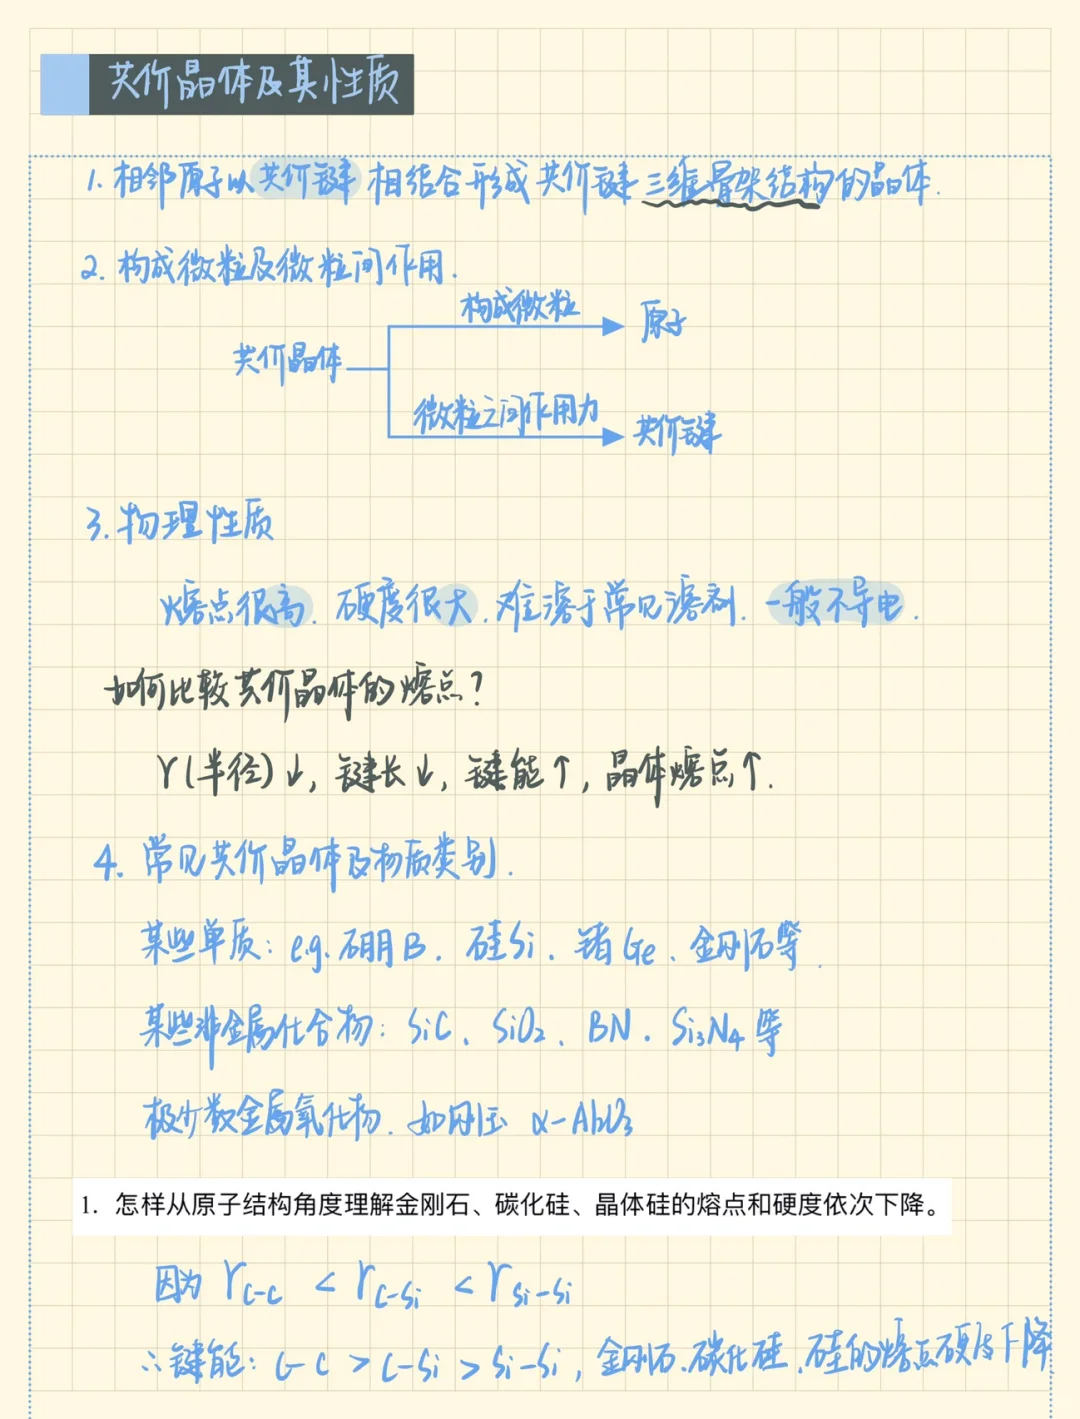 共价晶体及其性质
1. 相邻原子以共价键相结合形成共价键三维骨架结构的晶体.
2. 构成微粒及微粒间作用.
构成微粒
原子
共价晶体
微粒之间作用力
共价键
3. 物理性质
熔点很高. 硬度很大. 难溶于常见溶剂. 一般不导电.
如何比较共价晶体的熔点?
r(半径)↓, 键长↓, 键能↑, 晶体熔点↑.
4. 常见共价晶体及物质类别.
某些单质: e.g. 硼B、硅Si、锗Ge、金刚石等.
某些非金属化合物: SiC、SiO₂、BN、Si₃N₄等
极少数金属氧化物. 如刚玉 α-Al₂O₃
1. 怎样从原子结构角度理解金刚石、碳化硅、晶体硅的熔点和硬度依次下降。
因为 r C-C < r C-Si < r Si-Si
∴键能: C-C > C-Si > Si-Si, 金刚石、碳化硅、硅的熔点硬度下降